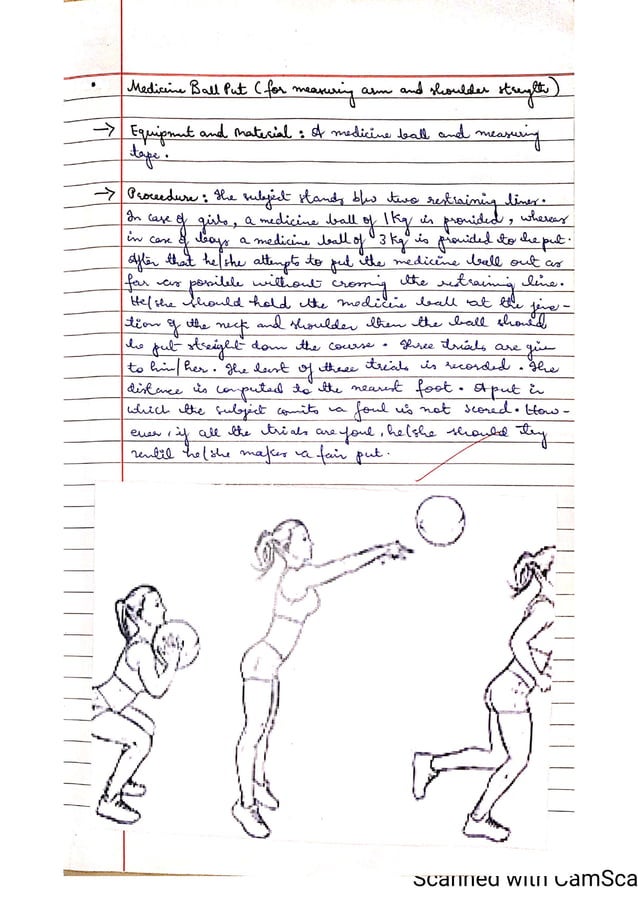 • Medicine Ball Put (for measuring arm and shoulder strength)
→ Equipment and Material : A medicine ball and measuring
tape.
→ Procedure : The subject stands b/w two restraining lines.
In case of girls, a medicine ball of 1 kg is provided, whereas
in case of boys a medicine ball of 3 kg is provided to be put.
After that he/she attempts to put the medicine ball out as
far as possible without crossing the restraining line.
He/she should hold the medicine ball at the junc-
tion of the neck and shoulder then the ball should
be put straight down the course. Three trials are given
to him/her. The best of three trials is recorded. The
distance is computed to the nearest foot. A put in
which the subject comits a foul is not scored. How-
ever, if all the trials are foul, he/she should try
until he/she makes a fair put.
Scanned with CamSca